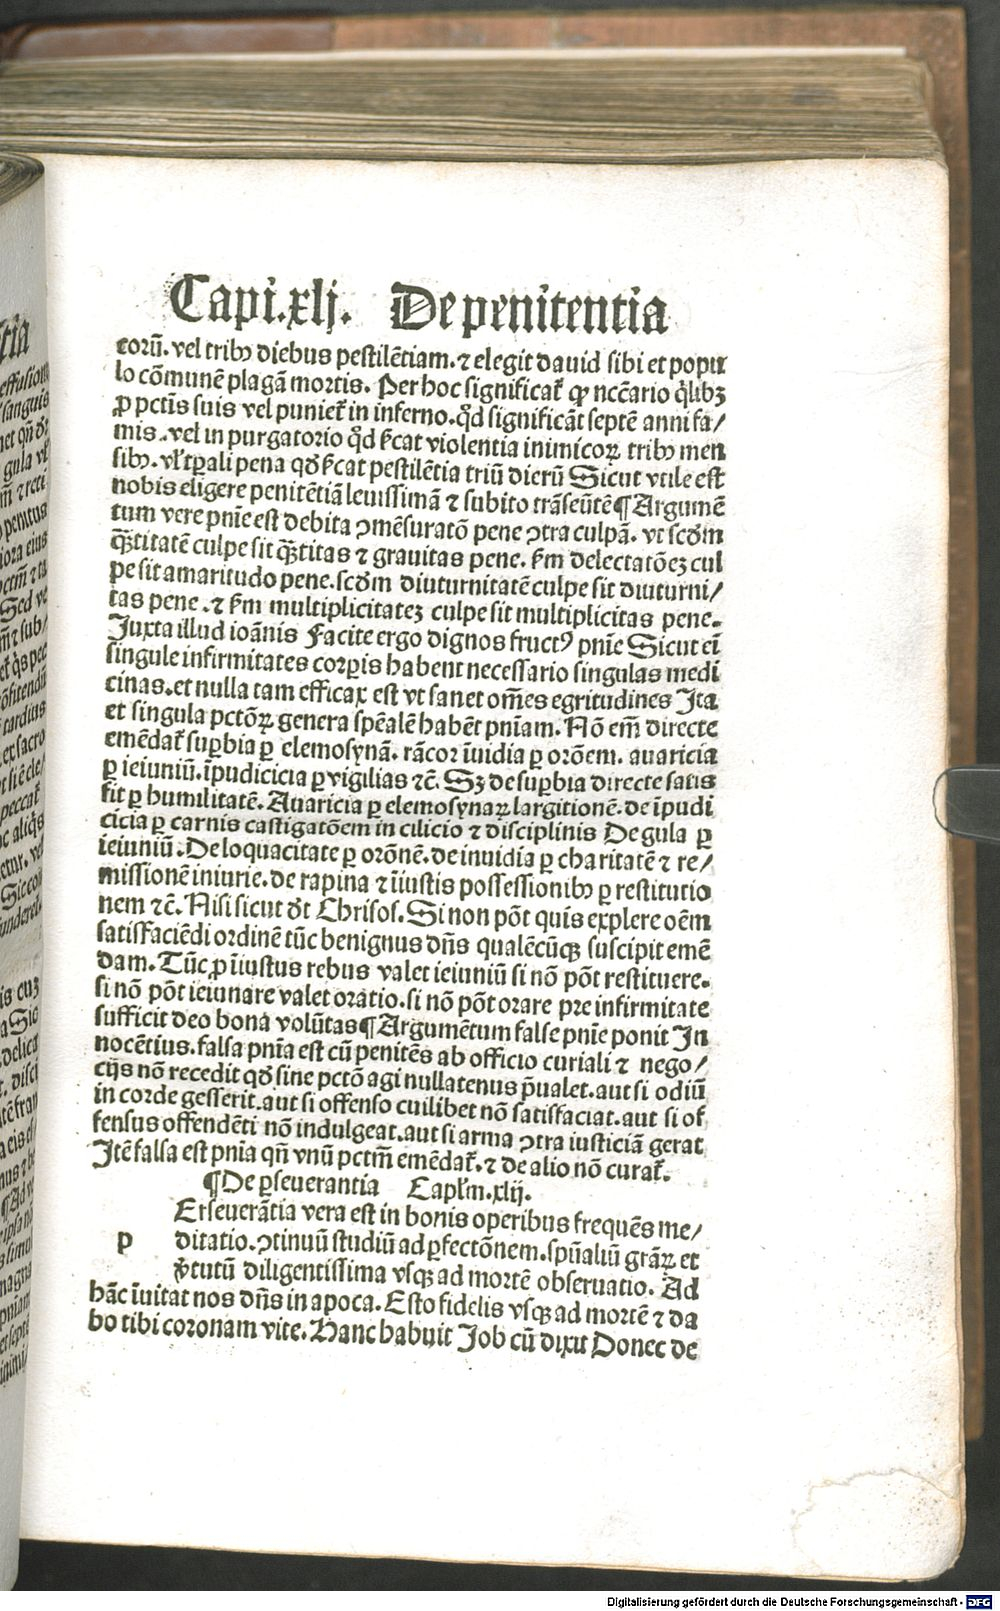 Capi.xlj. De penitentia
corū. vel tribꝰ diebus pestilētiam. ⁊ elegit dauid sibi et popu
lo cōmunē plagā mortis. Per hoc significat̄ ꝙ nccārio q̄libꝫ
ꝓ pctīs suis vel puniet̄ in inferno. qd̄ significāt septē anni fa/
mis. vel in purgatorio qd̄ ſcat violentia inimicoꝝ tribꝰ men
sibꝰ. vl̄ tꝑali pena qd̄ ſcat pestilētia triū dierū Sicut vtile est
nobis eligere penitētiā leuissimā ⁊ subito trāseūtē ¶ Argumē
tum vere pnīe est debita ꝯmēsuratō pene ꝯtra culpā. vt scd̄m
qͣ̄titatē culpe sit qͣ̄titas ⁊ grauitas pene. ſm delectatōeꝫ cul
pe sit amaritudo pene. scd̄m diuturnitatē culpe sit diuturni/
tas pene. ⁊ ſm multiplicitateꝫ culpe sit multiplicitas pene.
Juxta illud ioānis Facite ergo dignos fructꝰ pnīe Sicut eī
singule infirmitates corꝑis habent necessario singulas medi
cinas. et nulla tam efficax est vt sanet om̄es egritudines Ita
et singula pctōꝝ genera spēalē habēt pnīam. Nō em̄ directe
emēdat̄ suꝑbia ꝑ elemosynā. rācor īuidia ꝑ orōem. auaricia
ꝑ ieiuniū. īpudicicia ꝑ vigilias ⁊c̄. Sꝫ de suꝑbia directe satis
fit ꝑ humilitatē. Auaricia ꝑ elemosynaꝝ largitionē. de īpudi
cicia ꝑ carnis castigatōem in cilicio ⁊ disciplinis De gula ꝑ
ieiuniū. De loquacitate ꝑ orōnē. de inuidia ꝑ charitatē ⁊ re/
missionē iniurie. de rapina ⁊ īiustis possessionibꝰ ꝑ restitutio
nem ⁊c̄. Nisi sicut dt̄ Chrisos. Si non pōt quis explere oēm
satisfaciēdi ordinē tūc benignus dn̄s qualēcūqꝫ suscipit emē
dam. Tūc ꝓ īiustus rebus valet ieiuniū si nō pōt restituere.
si nō pōt ieiunare valet oratio. si nō pōt orare pre infirmitate
sufficit deo bona volūtas ¶ Argumētum false pnīe ponit In
nocētius. falsa pnīa est cū penitēs ab officio curiali ⁊ nego/
cijs nō recedit qd̄ sine pctō agi nullatenus p̄ualet. aut si odiū
in corde gesserit. aut si offenso cuilibet nō satisfaciat. aut si of
fensus offendēti nō indulgeat. aut si arma ꝯtra iusticiā gerat
Itē falsa est pnīa qn̄ vnū pctm̄ emēdat̄. ⁊ de alio nō curat̄.
¶ De ꝑseuerantia Capl̄m. xlij.
p Erseuerātia vera est in bonis operibus frequēs me/
ditatio. ꝯtinuū studiū ad ꝑfectōnem. spūaliū grāꝝ et
v̓tutū diligentissima vsqꝫ ad mortē obseruatio. Ad
hāc īuitat nos dn̄s in apoca. Esto fidelis vsqꝫ ad mortē ⁊ da
bo tibi coronam vite. Hanc habuit Job cū dixit Donec de
Digitalisierung gefördert durch die Deutsche Forschungsgemeinschaft - DFG